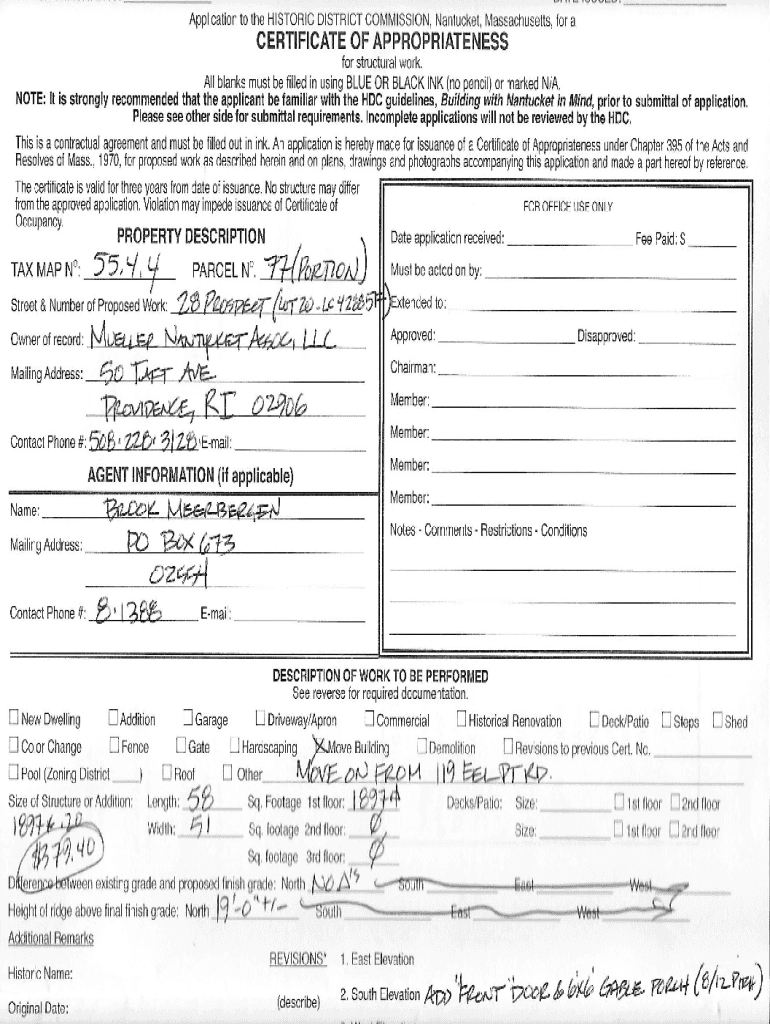 DATE ISSUED:
Application to the HISTORIC DISTRICT COMMISSION, Nantucket, Massachusetts, for a
CERTIFICATE OF APPROPRIATENESS
for structural work.
All blanks must be filled in using BLUE OR BLACK INK (no pencil) or marked N/A.
NOTE: It is strongly recommended that the applicant be familiar with the HDC guidelines, Building with Nantucket in Mind, prior to submittal of application.
Please see other side for submittal requirements. Incomplete applications will not be reviewed by the HDC.
This is a contractual agreement and must be filled out in ink. An application is hereby made for issuance of a Certificate of Appropriateness under Chapter 395 of the Acts and
Resolves of Mass., 1970, for proposed work as described herein and on plans, drawings and photographs accompanying this application and made a part hereof by reference.
The certificate is valid for three years from date of issuance. No structure may differ
from the approved application. Violation may impede issuance of Certificate of
Occupancy.
PROPERTY DESCRIPTION
TAX MAP Nº: 55.4.4 PARCEL Nº: 77 (PORTION)
Street & Number of Proposed Work: 28 PROSPECT (LOT 20 - LC 42885
Owner of record: MUELLER NANTUCKET ASSOC, LLC
Mailing Address: 50 TAFT AVE
PROVIDENCE, RI 02906
Contact Phone #: 508.228.3128 E-mail:
AGENT INFORMATION (if applicable)
Name: BROOK MEERBERGEN
Mailing Address: PO BOX 673
Contact Phone #: 8.1388 E-mail:
FOR OFFICE USE ONLY
Date application received: Fee Paid: $
Must be acted on by:
Extended to:
Approved: Disapproved:
Chairman:
Member:
Member:
Member:
Member:
Notes - Comments - Restrictions - Conditions
DESCRIPTION OF WORK TO BE PERFORMED
See reverse for required documentation.
New Dwelling Addition Garage Driveway/Apron Commercial Historical Renovation Deck/Patio Steps Shed
Color Change Fence Gate Hardscaping X Move Building Demolition Revisions to previous Cert. No.
Pool (Zoning District ) Roof Other MOVE ON FROM 119 EEL PT RD.
Size of Structure or Addition: Length: 58 Sq. Footage 1st floor: 1897 Decks/Patio: Size: 1st floor 2nd floor
Width: 51 Sq. footage 2nd floor: 0 Size: 1st floor 2nd floor
$379.40
Sq. footage 3rd floor: 0
Difference between existing grade and proposed finish grade: North South East West
Height of ridge above final finish grade: North 19'-0" +/- South East West
Additional Remarks
REVISIONS* 1. East Elevation
Historic Name:
(describe) 2. South Elevation ADD "FRONT" DOOR & 6'x6' GABLE PORCH (8/12 PITCH)
Original Date: